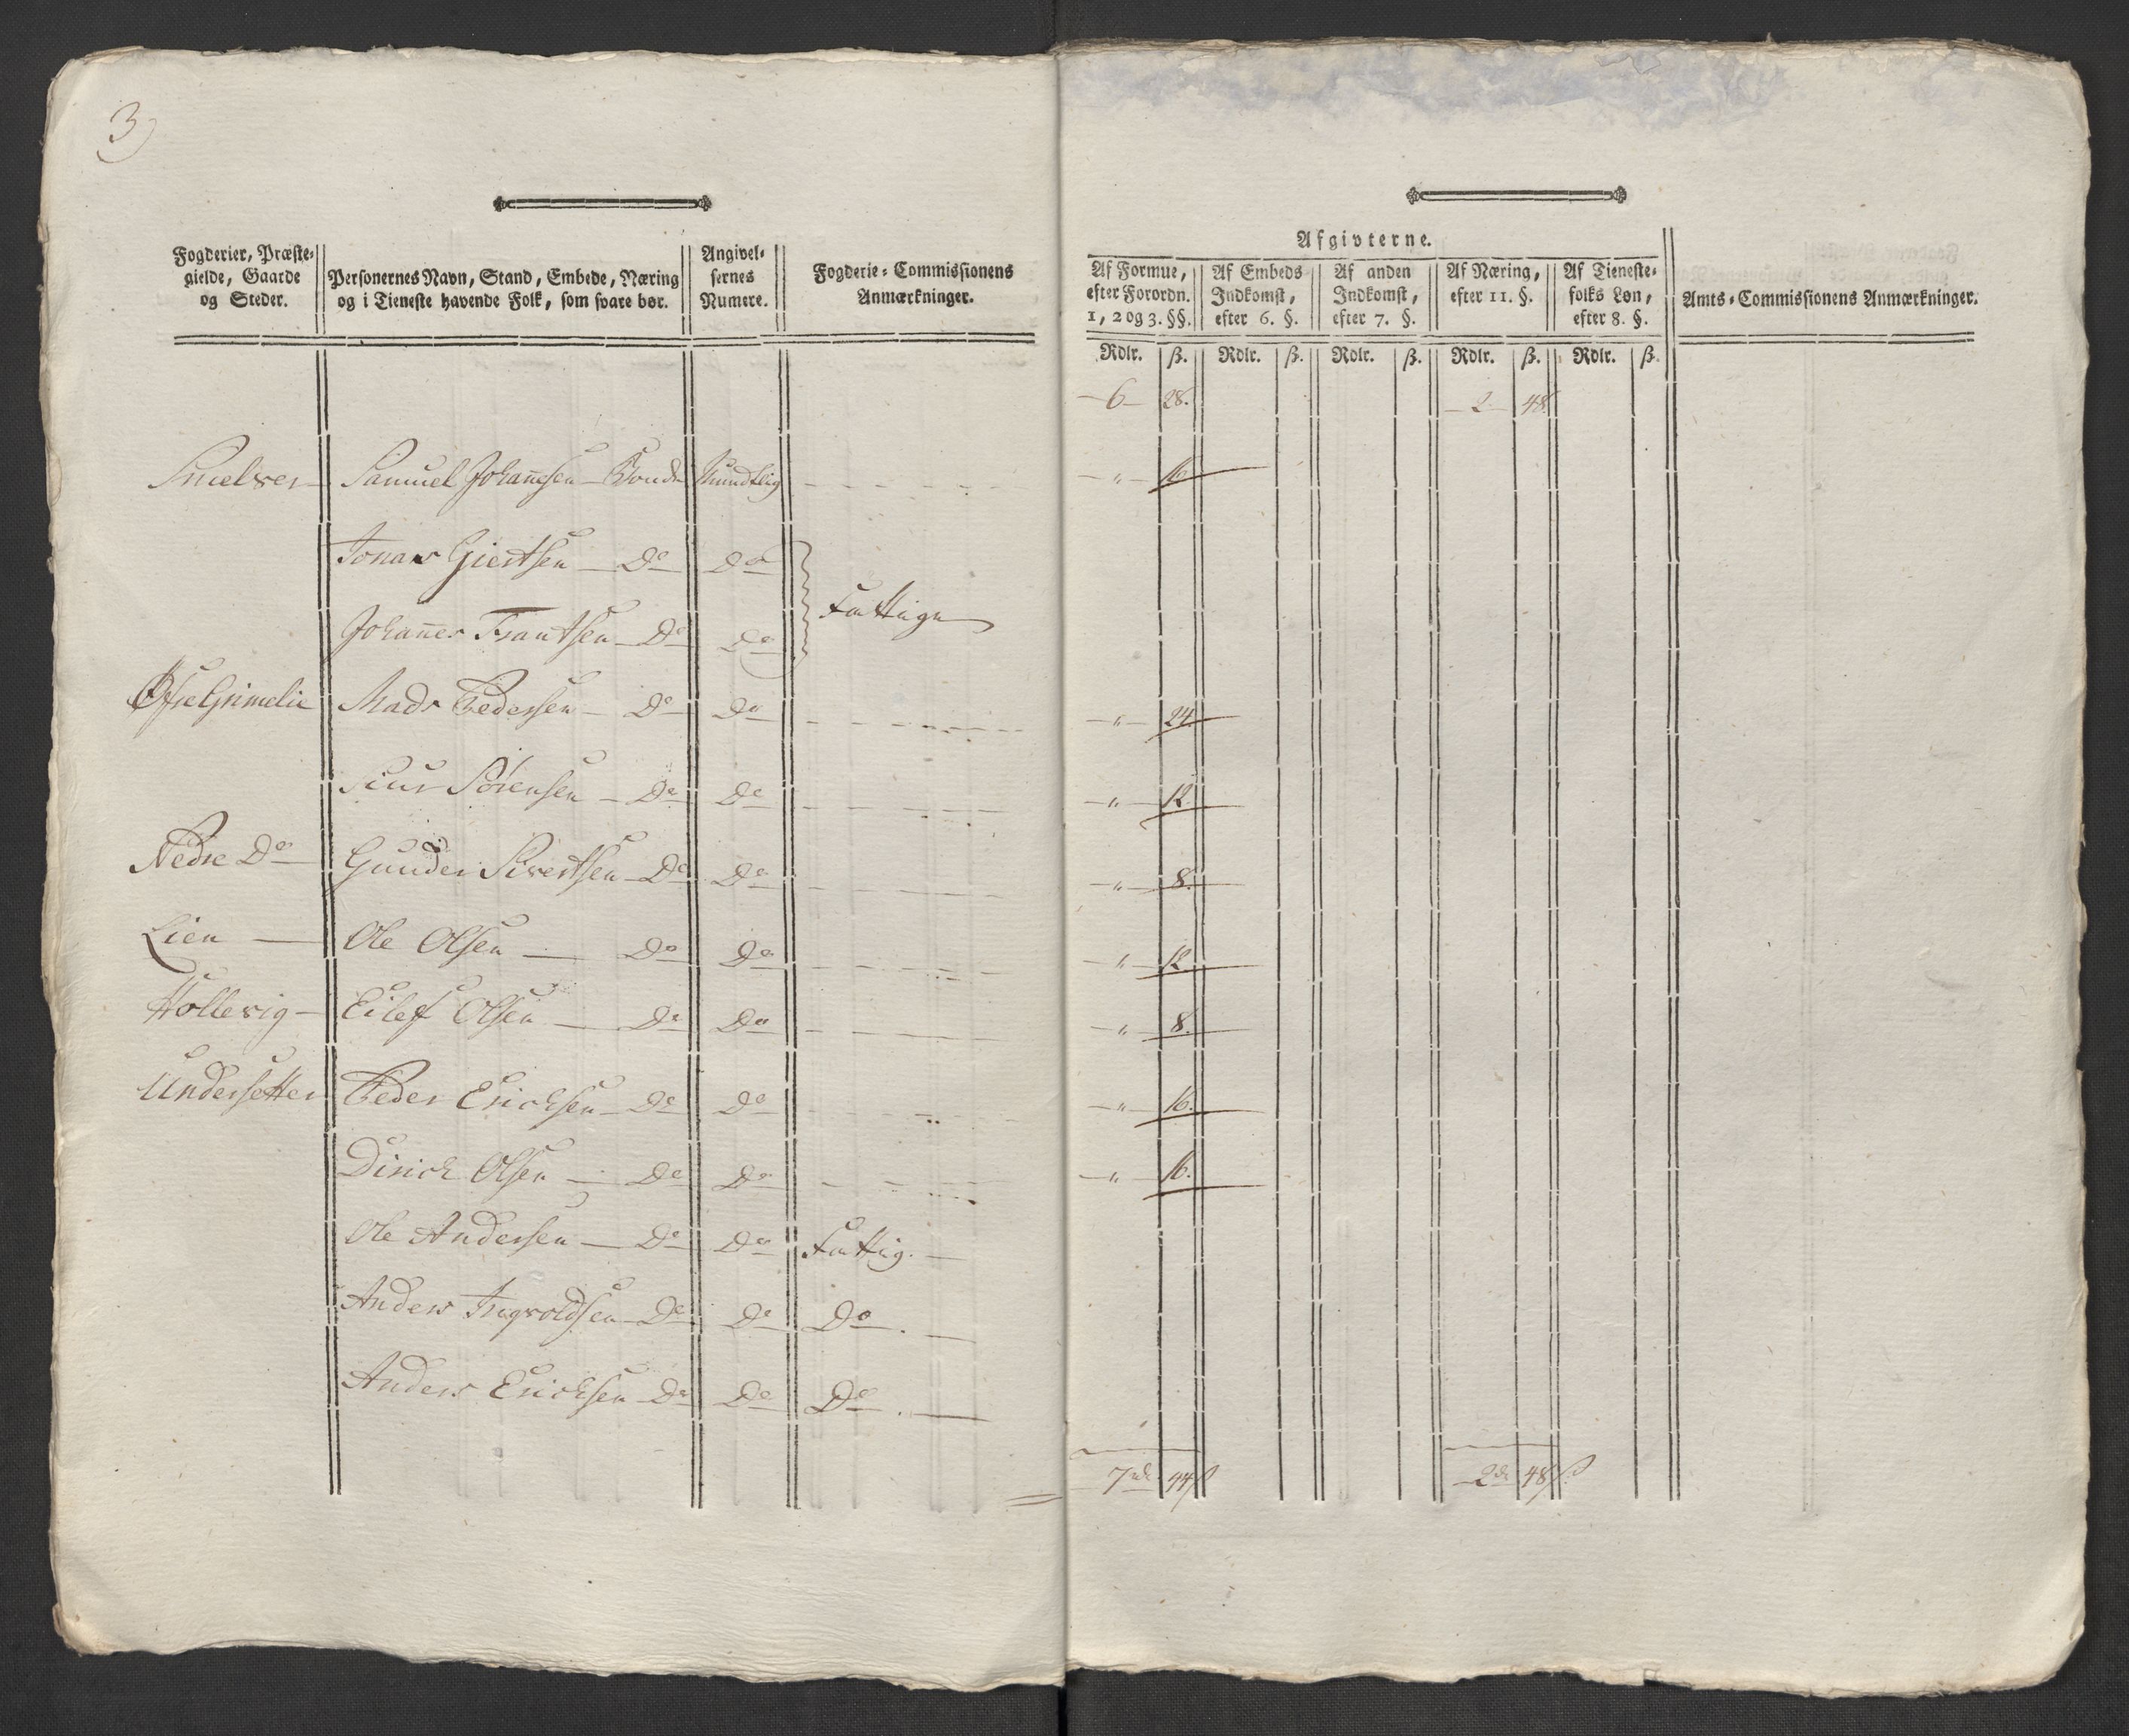 3)
Fogderier, Præste-
gielde, Gaarde
og Steder.
Personernes Navn, Stand, Embede, Næring
og i Tieneste havende Folk, som svare bør.
Angivel-
sernes
Numere.
Fogderie-Commissionens
Anmærkninger.
Afgivterne.
Af Formue,
efter Forordn.
1, 2 og 3. §§.
Af Embeds
Indkomst,
efter 6. §.
Af anden
Indkomst,
efter 7. §.
Af Næring,
efter 11. §.
Af Tieneste-
folks Løn,
efter 8. §.
Amts-Commissionens Anmærkninger.
Rdlr. ß. Rdlr. ß. Rdlr. ß. Rdlr. ß. Rdlr. ß.
6 28. 2 48
Smelver Samuel Johannesen Bonde Mundtlig " 16
Jonas Giertsen Do Do
Johannes Frantsen Do Do Fattige
Øfre Grimelie Mads Pedersen Do Do " 24
Siur Sørensen Do Do " 12
Nedre Do Gunder Sivertsen Do Do " 8.
Lien Ole Olsen Do Do " 12
Hollevig Eilef Olsen Do Do " 8.
Undersetter Peder Erichsen Do Do " 16.
Dirich Olsen Do Do " 16.
Ole Andersen Do Do Fattig.
Anders Ingvoldsen Do Do Do.
Anders Erichsen Do Do Do.
7 rd 44 ß 2 rd 48 ß